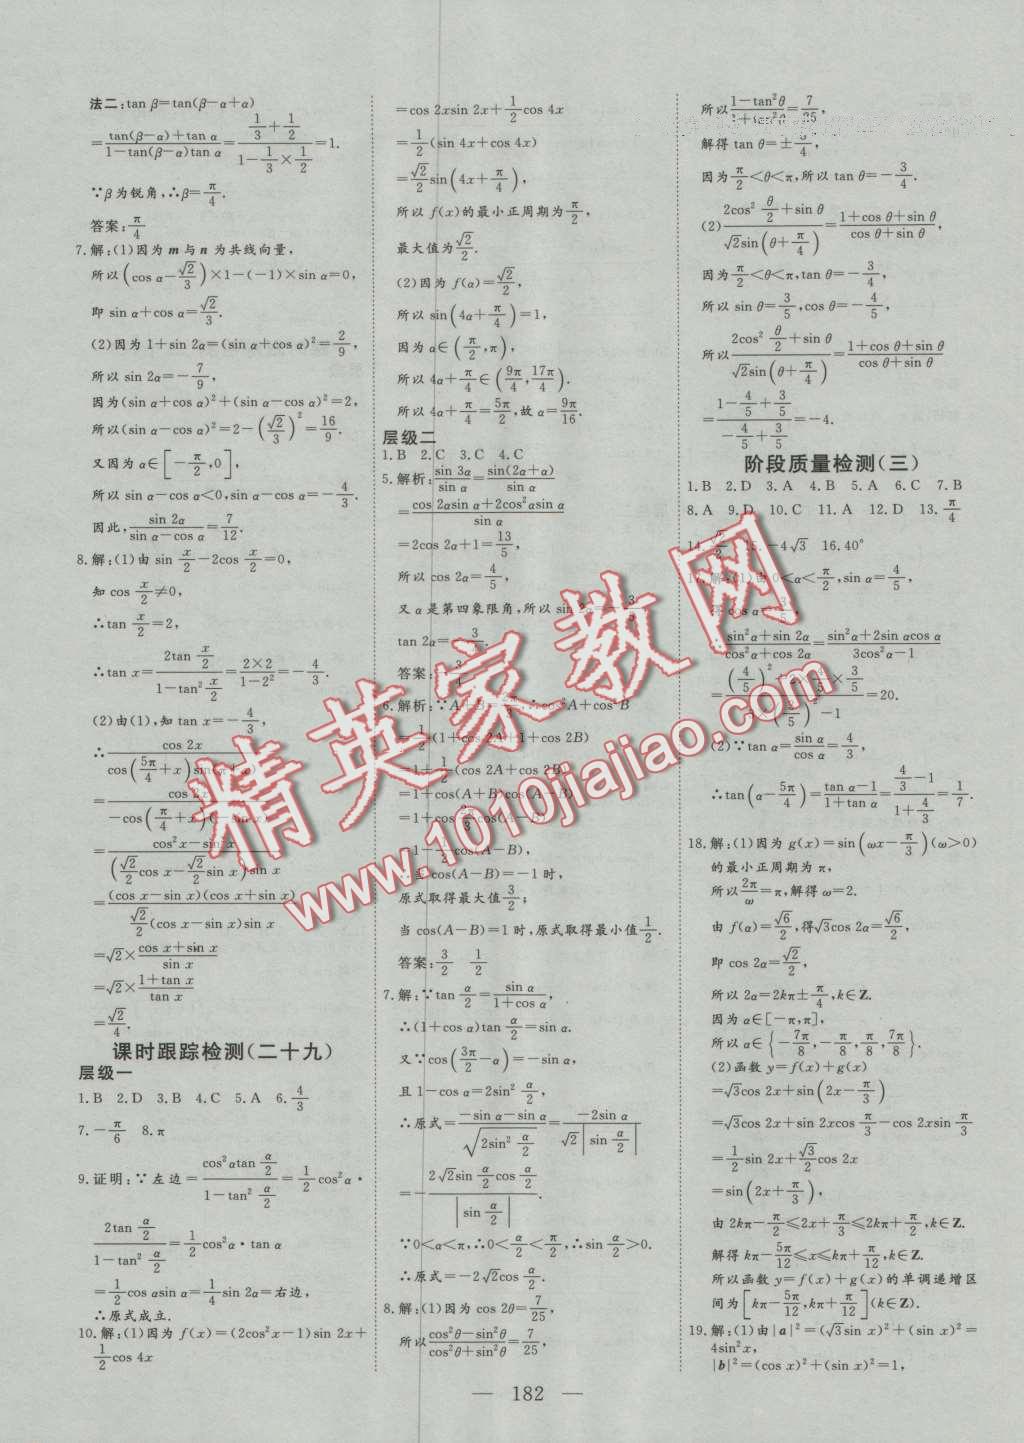 法二:tan β=tan(β-α+α)
=\frac{tan(β-α)+tan α}{1-tan(β-α)tan α}=\frac{\frac{1}{3}+\frac{1}{2}}{1-\frac{1}{3}×\frac{1}{2}}=1.
∵β为锐角,∴β=\frac{π}{4}.
答案:\frac{π}{4}
7.解:(1)因为 m 与 n 为共线向量,
所以(cos α-\frac{√2}{3})×1-(-1)×sin α=0,
即 sin α+cos α=\frac{√2}{3}.
(2)因为 1+sin 2α=(sin α+cos α)²=\frac{2}{9},
所以 sin 2α=-\frac{7}{9},
因为(sin α+cos α)²+(sin α-cos α)²=2,
所以(sin α-cos α)²=2-(\frac{√2}{3})²=\frac{16}{9}.
又因为 α∈[-\frac{π}{2},0],
所以 sin α-cos α<0,sin α-cos α=-\frac{4}{3}.
因此,\frac{sin 2α}{sin α-cos α}=\frac{7}{12}.
8.解:(1)由 sin \frac{x}{2}-2cos \frac{x}{2}=0,
知 cos \frac{x}{2}≠0,
∴tan \frac{x}{2}=2,
∴tan x=\frac{2tan \frac{x}{2}}{1-tan² \frac{x}{2}}=\frac{2×2}{1-2²}=-\frac{4}{3}.
(2)由(1),知 tan x=-\frac{4}{3},
∴\frac{cos 2x}{cos(\frac{5π}{4}+x)sin(π+x)}
=\frac{cos 2x}{-cos(\frac{π}{4}+x)(-sin x)}
=\frac{cos²x-sin²x}{(\frac{√2}{2}cos x-\frac{√2}{2}sin x)sin x}
=\frac{(cos x-sin x)(cos x+sin x)}{\frac{√2}{2}(cos x-sin x)sin x}
=√2×\frac{cos x+sin x}{sin x}
=√2×\frac{1+tan x}{tan x}
=\frac{√2}{4}.
课时跟踪检测(二十九)
层级一
1.B 2.D 3.B 4.C 5.A 6.\frac{4}{3}
7.-\frac{π}{6} 8.π
9.证明:∵左边=\frac{cos²αtan \frac{α}{2}}{1-tan² \frac{α}{2}}=\frac{1}{2}cos²α·
\frac{2tan \frac{α}{2}}{1-tan² \frac{α}{2}}=\frac{1}{2}cos²α·tan α
=\frac{1}{2}cos αsin α=\frac{1}{4}sin 2α=右边,
∴原式成立.
10.解:(1)因为 f(x)=(2cos²x-1)sin 2x+
\frac{1}{2}cos 4x
=cos 2xsin 2x+\frac{1}{2}cos 4x
=\frac{1}{2}(sin 4x+cos 4x)
=\frac{√2}{2}sin(4x+\frac{π}{4}),
所以 f(x)的最小正周期为\frac{π}{2},
最大值为\frac{√2}{2}.
(2)因为 f(α)=\frac{√2}{2},
所以 sin(4α+\frac{π}{4})=1,
因为 α∈(\frac{π}{2},π),
所以 4α+\frac{π}{4}∈(\frac{9π}{4},\frac{17π}{4}).
所以 4α+\frac{π}{4}=\frac{5π}{2},故 α=\frac{9π}{16}.
层级二
1.B 2.C 3.C 4.C
5.解析:\frac{sin 3α}{sin α}=\frac{sin(2α+α)}{sin α}
=\frac{cos 2αsin α+2cos²αsin α}{sin α}
=2cos 2α+1=\frac{13}{5},
所以 cos 2α=\frac{4}{5},
又 α 是第四象限角,所以 sin 2α=-\frac{3}{5},
tan 2α=-\frac{3}{4}.
答案:-\frac{3}{4}
6.解析:∵A+B=\frac{2π}{3},∴cos²A+cos²B
=\frac{1}{2}(1+cos 2A+1+cos 2B)
=1+\frac{1}{2}(cos 2A+cos 2B)
=1+cos(A+B)cos(A-B)
=1+cos \frac{2π}{3}cos(A-B)
=1-\frac{1}{2}cos(A-B),
∴当 cos(A-B)=-1 时,
原式取得最大值\frac{3}{2};
当 cos(A-B)=1 时,原式取得最小值\frac{1}{2}.
答案:\frac{3}{2} \frac{1}{2}
7.解:∵tan \frac{α}{2}=\frac{sin α}{1+cos α},
∴(1+cos α)tan \frac{α}{2}=sin α.
又∵cos(\frac{3π}{2}-α)=-sin α,
且 1-cos α=2sin² \frac{α}{2},
∴原式=\frac{-sin α-sin α}{√(2sin² \frac{α}{2})}=\frac{-2sin α}{√2|sin \frac{α}{2}|}
=-\frac{2√2sin \frac{α}{2}cos \frac{α}{2}}{|sin \frac{α}{2}|}.
∵0<α<π,∴0<\frac{α}{2}<\frac{π}{2},∴sin \frac{α}{2}>0.
∴原式=-2√2cos \frac{α}{2}.
8.解:(1)因为 cos 2θ=\frac{7}{25},
所以\frac{cos²θ-sin²θ}{cos²θ+sin²θ}=\frac{7}{25},
所以\frac{1-tan²θ}{1+tan²θ}=\frac{7}{25},
解得 tan θ=±\frac{3}{4},
因为\frac{π}{2}<θ<π,所以 tan θ=-\frac{3}{4}.
(2)\frac{2cos² \frac{θ}{2}+sin θ}{√2sin(θ+\frac{π}{4})}=\frac{1+cos θ+sin θ}{cos θ+sin θ},
因为\frac{π}{2}<θ<π,tan θ=-\frac{3}{4},
所以 sin θ=\frac{3}{5},cos θ=-\frac{4}{5},
所以\frac{2cos² \frac{θ}{2}+sin θ}{√2sin(θ+\frac{π}{4})}=\frac{1+cos θ+sin θ}{cos θ+sin θ}
=\frac{1-\frac{4}{5}+\frac{3}{5}}{-\frac{4}{5}+\frac{3}{5}}=-4.
阶段质量检测(三)
1.B 2.D 3.A 4.B 5.A 6.C 7.B
8.A 9.D 10.C 11.A 12.D 13.\frac{π}{4}
14.\frac{√2}{2} 15.-4√3 16.40°
17.解:(1)由 0<α<\frac{π}{2},sin α=\frac{4}{5},
得 cos α=\frac{3}{5},
∴\frac{sin²α+sin 2α}{cos²α+cos 2α}=\frac{sin²α+2sin αcos α}{3cos²α-1}
=\frac{(\frac{4}{5})²+2×\frac{4}{5}×\frac{3}{5}}{3×(\frac{3}{5})²-1}=20.
(2)∵tan α=\frac{sin α}{cos α}=\frac{4}{3},
∴tan(α-\frac{5π}{4})=\frac{tan α-1}{1+tan α}=\frac{\frac{4}{3}-1}{1+\frac{4}{3}}=\frac{1}{7}.
18.解:(1)因为 g(x)=sin(ωx-\frac{π}{3})(ω>0)
的最小正周期为 π,
所以\frac{2π}{ω}=π,解得 ω=2.
由 f(α)=\frac{√6}{2},得√3cos 2α=\frac{√6}{2},
即 cos 2α=\frac{√2}{2},
所以 2α=2kπ±\frac{π}{4},k∈Z.
因为 α∈[-π,π],
所以 α∈{-\frac{7π}{8},-\frac{π}{8},\frac{π}{8},\frac{7π}{8}}.
(2)函数 y=f(x)+g(x)
=√3cos 2x+sin(2x-\frac{π}{3})
=√3cos 2x+sin 2xcos\frac{π}{3}-cos 2xsin\frac{π}{3}
=\frac{1}{2}sin 2x+\frac{√3}{2}cos 2x
=sin(2x+\frac{π}{3}),
由 2kπ-\frac{π}{2}≤2x+\frac{π}{3}≤2kπ+\frac{π}{2},k∈Z.
解得 kπ-\frac{5π}{12}≤x≤kπ+\frac{π}{12},k∈Z.
所以函数 y=f(x)+g(x)的单调递增区
间为[kπ-\frac{5π}{12},kπ+\frac{π}{12}](k∈Z).
19.解:(1)由|a|²=(√3sin x)²+(sin x)²=
4sin²x,
|b|²=(cos x)²+(sin x)²=1,
— 182 —
精英家教网
www.1010jiajiao.com